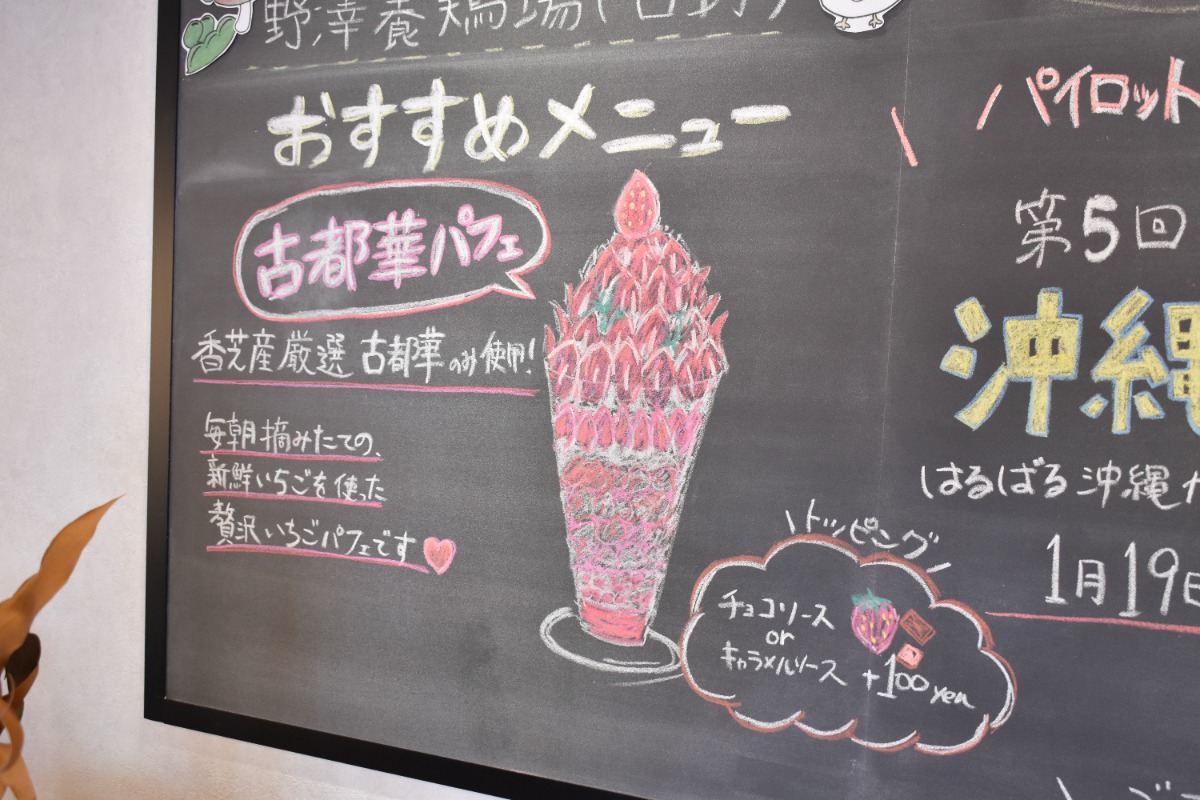 野澤養鶏場
おすすめメニュー
古都華パフェ
香芝産厳選 古都華のみ使用!
毎朝摘みたての、
新鮮いちごを使った
贅沢いちごパフェです
トッピング
チョコソース
or
キャラメルソース
+100yen
パイロット
第5回
沖縄
はるばる沖縄
1月19日